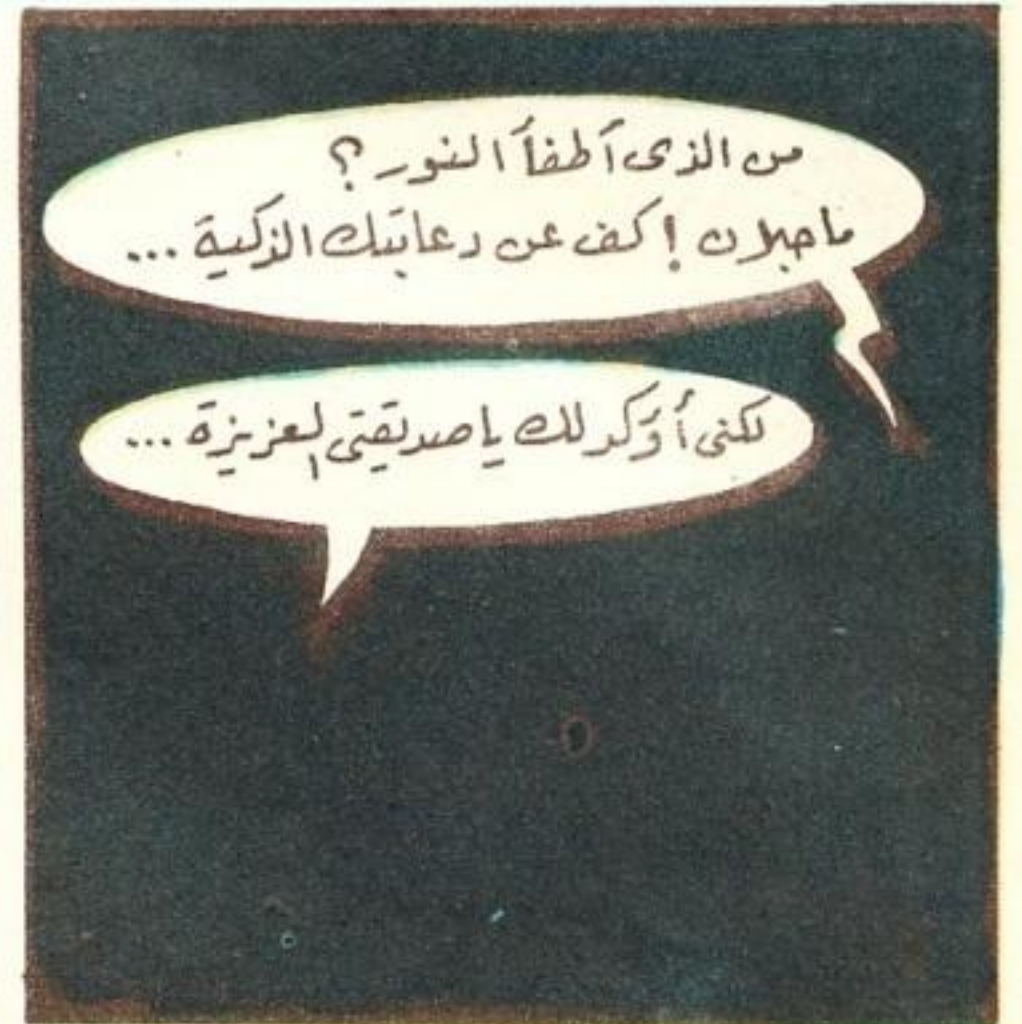 من الذى أطفأ النور ؟
ماجلان ! كف عن دعابتك الذكية ...
لكنى أؤكد لك يا صديقتى العزيزة ...